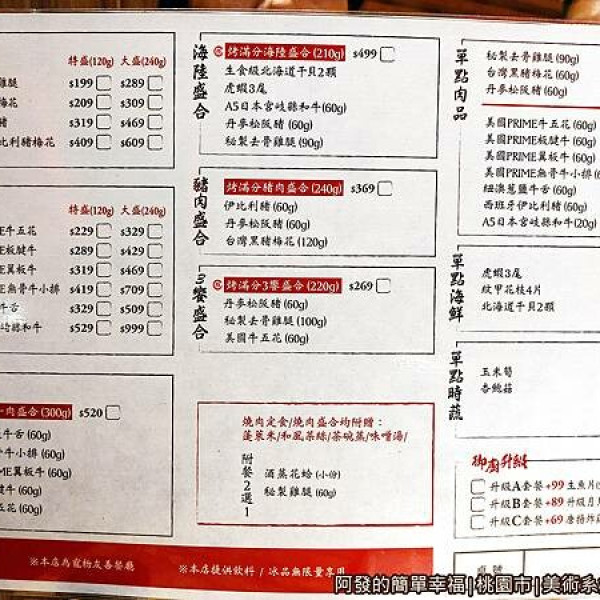 特盛(120g) 大盛(240g)
雞腿 $199 $289
梅花 $209 $309
豬 $319 $469
比利豬梅花 $409 $609
特盛(120g) 大盛(240g)
E牛五花 $229 $329
E板腱牛 $289 $429
E翼板牛 $319 $469
E無骨牛小排 $419 $709
牛舌 $329 $509
和牛 $529 $999
肉盛合(300g) $520
牛舌(60g)
牛小排(60g)
ME翼板牛(60g)
腱牛(60g)
五花(60g)
海陸盛合
烤滿分海陸盛合(210g) $499
生食級北海道干貝2顆
虎蝦3尾
A5日本宮崎縣和牛(60g)
丹麥松阪豬(60g)
秘製去骨雞腿(90g)
豬肉盛合
烤滿分豬肉盛合(240g) $369
伊比利豬(60g)
丹麥松阪豬(60g)
台灣黑豬梅花(120g)
3饗盛合
烤滿分3饗盛合(220g) $269
丹麥松阪豬(60g)
秘製去骨雞腿(100g)
美國牛五花(60g)
燒肉定食/燒肉盛合均附贈：
蓬萊米/和風菜絲/茶碗蒸/味噌湯/
附餐2選1
酒蒸花蛤(小份)
秘製雞腿(60g)
單點肉品
秘製去骨雞腿(90g)
台灣黑豬梅花(60g)
丹麥松阪豬(60g)
美國PRIME牛五花(60g)
美國PRIME板腱牛(60g)
美國PRIME翼板牛(60g)
美國PRIME無骨牛小排(6
紐澳蔥鹽牛舌(60g)
西班牙伊比利豬(60g)
A5日本宮崎縣和牛(20g)
單點海鮮
虎蝦3尾
紋甲花枝4片
北海道干貝2顆
單點時蔬
玉米筍
杏鮑菇
御廚升級
升級A套餐+99生魚片
升級B套餐+89升級月
升級C套餐+69唐揚炸
桌號
※本店為寵物友善餐廳
※本店提供飲料 / 冰品無限量享用
阿發的簡單幸福|桃園市|美術系